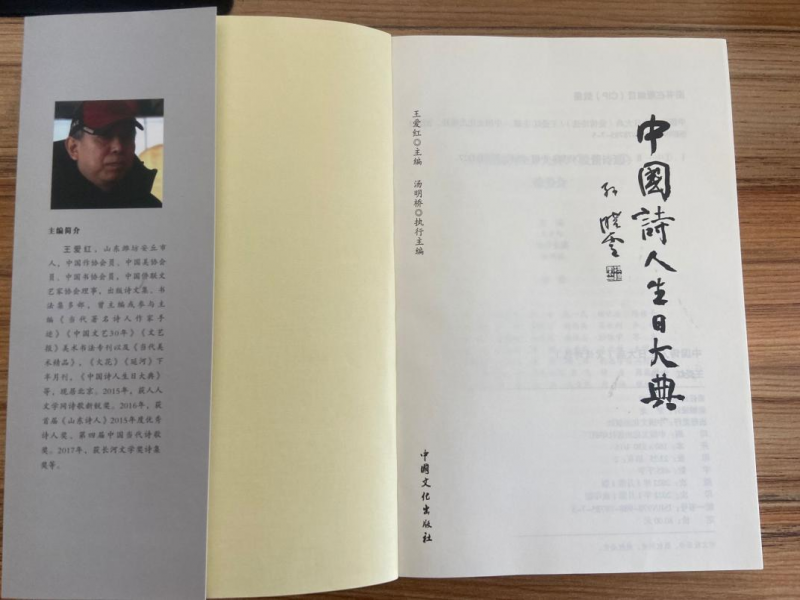 主编简介
王爱红，山东潍坊安丘市
人，中国作协会员、中国美协会
会员、中国书协会员，中国侨联文
艺家协会理事。出版诗文集、书
法集多部，曾主编或参与主
编《当代著名诗人作家手
迹》《中国文艺30年》《文艺
报》美术书法专刊以及《当代美
术精品》，《大昆》《延河》下
半月刊，《中国诗人生日大典》
等。现居北京。2015年，获人人
文学网诗歌新锐奖。2016年，获
首届《山东诗人》2015年度优秀
诗人奖，第四届中国当代诗歌
奖。2017年，获长河文学奖诗集
奖等。
王爱红◎主编 汤明桥◎执行主编
中國詩人生日大典
孙晓云
中国文化出版社